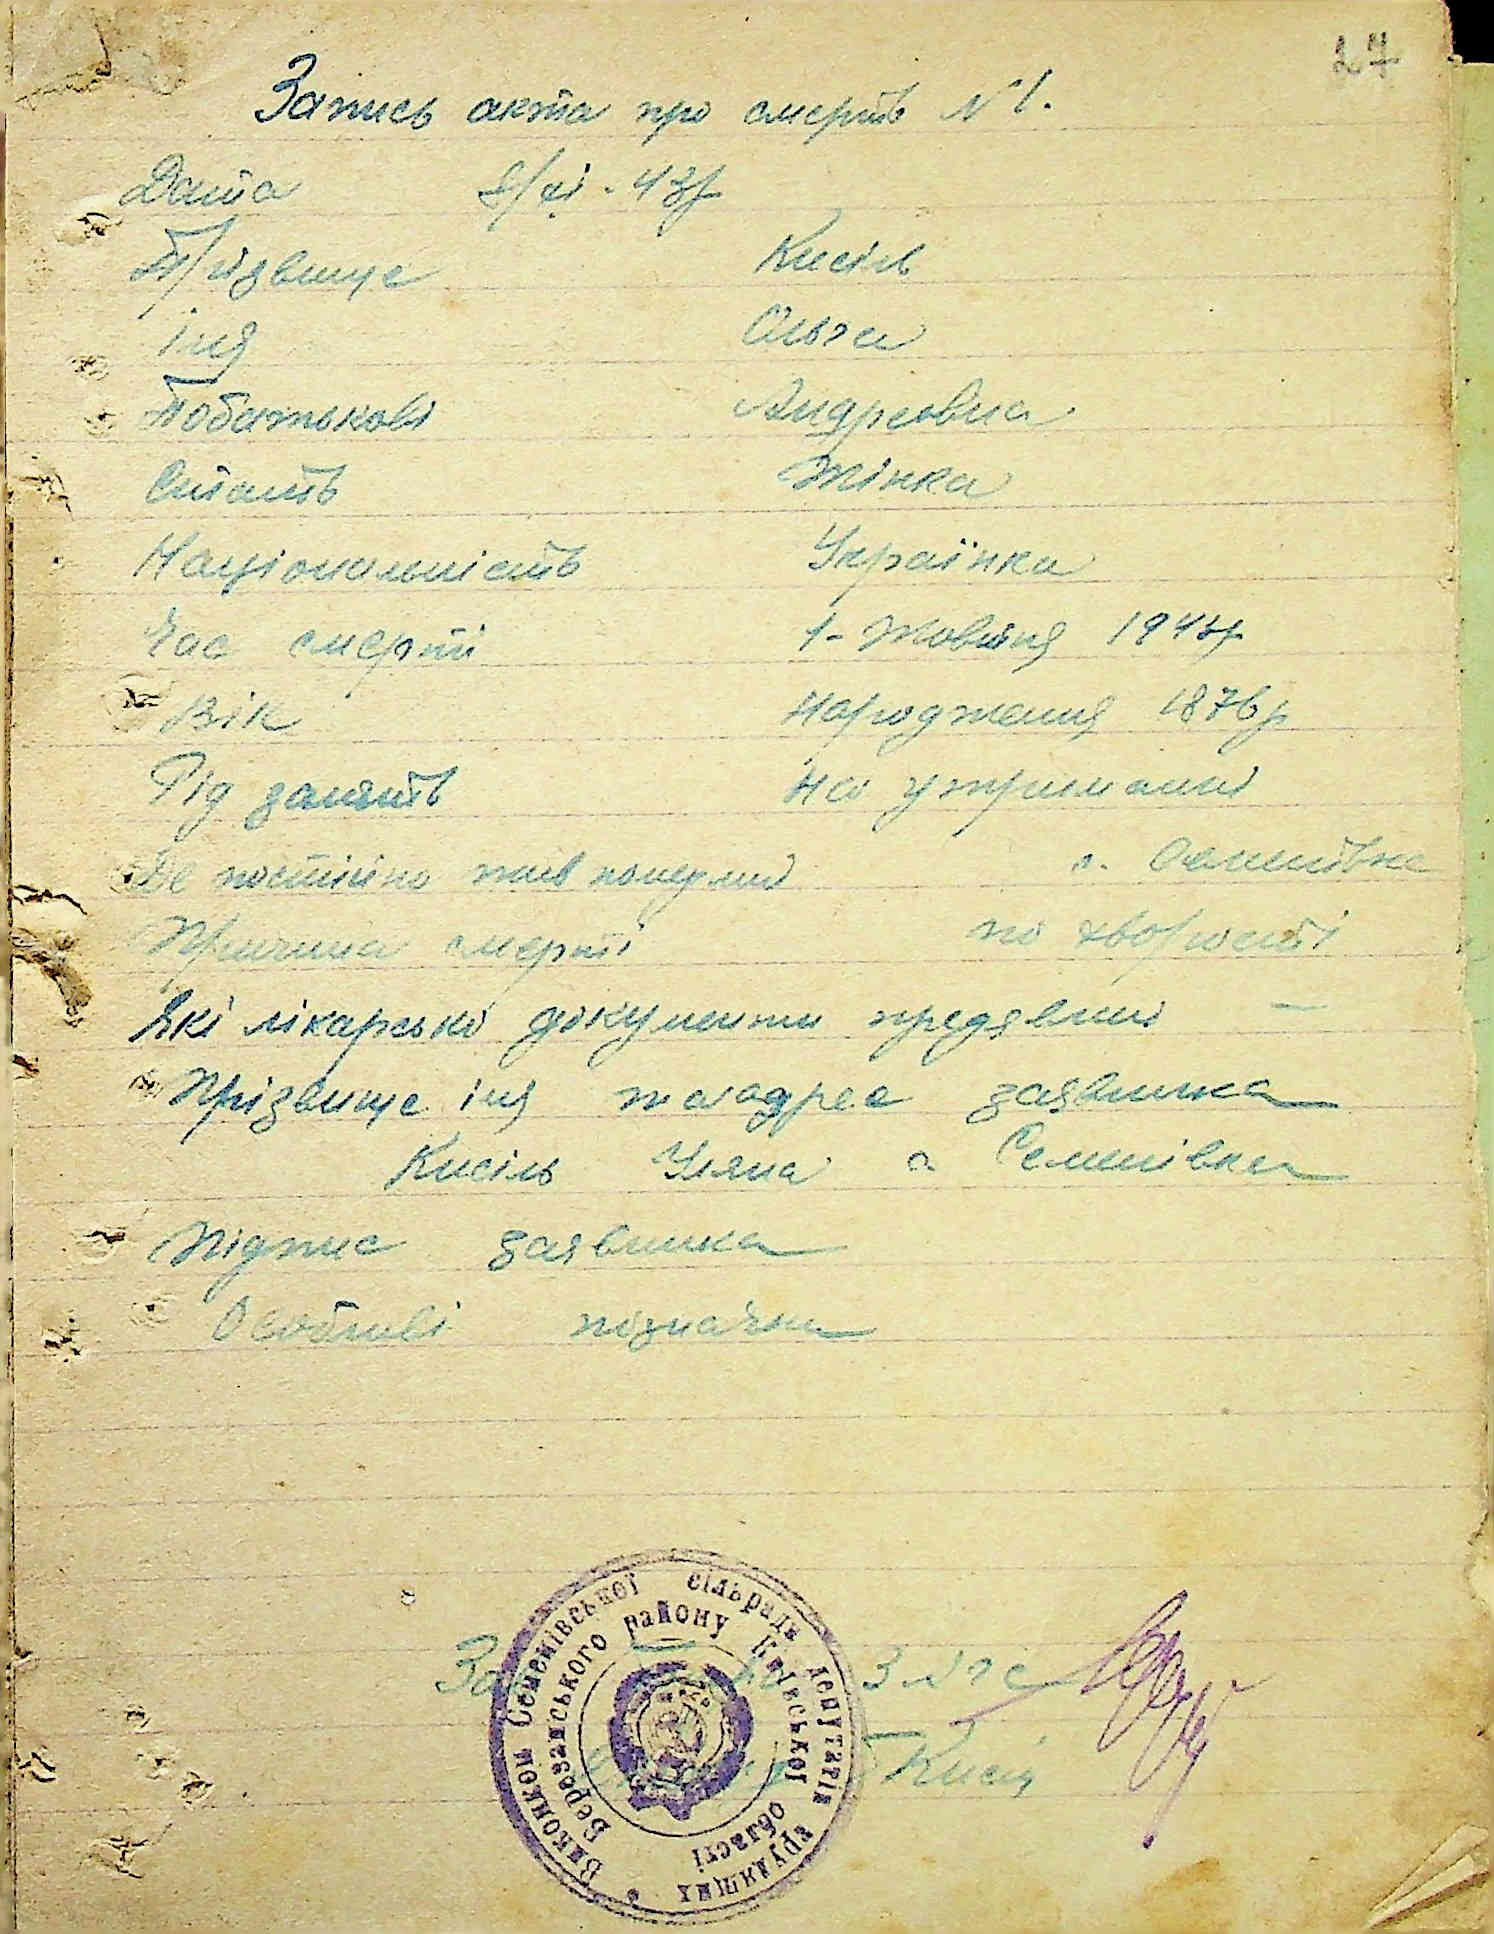 27
Запись акта про смерть №1.
Дата 8/XI - 43р
Прізвище Кисіль
імя Ольга
Побатькові Андреєвна
Стать Жінка
Національність Українка
Час смерті 1- Жовтня 1943р
Вік Народження 1876р
Рід занять На утриманні
Де постійно жив померлий с. Семенівка
Причина смерті по хворості
Які лікарські документи предявлені —
Прізвище імя та адрес заявника
Кисіль Уляна с Семенівка
Підпис заявника
Особливі позначки
Виконком Семенівської сільради депутатів трудящих
Березанського району Київської області
Кисіль